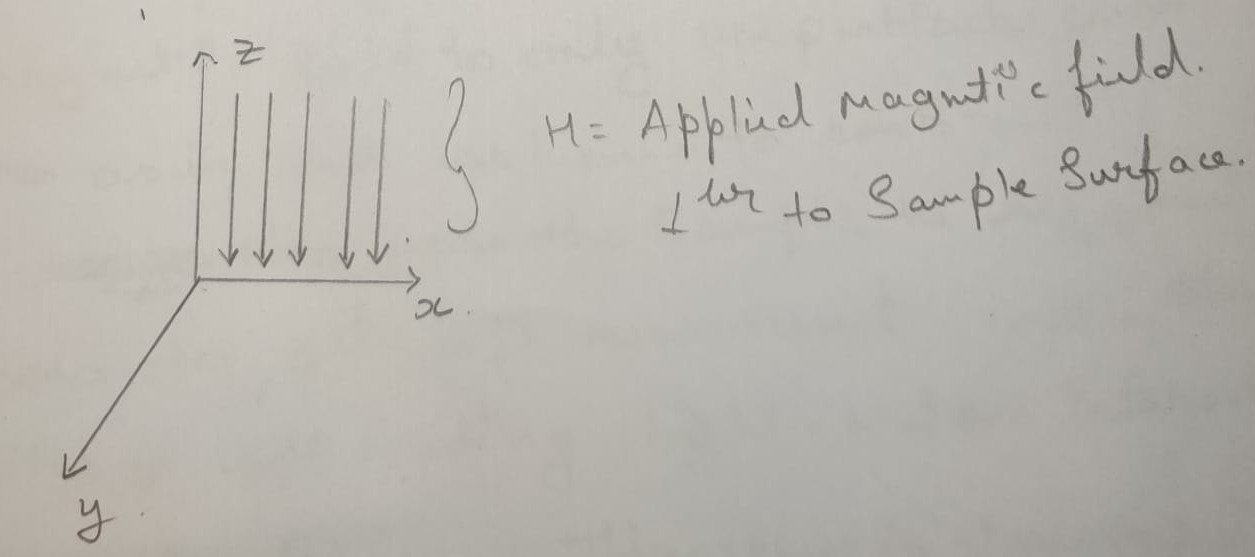 z
H = Applied magnetic field.
⊥ler to Sample Surface.
x.
y.